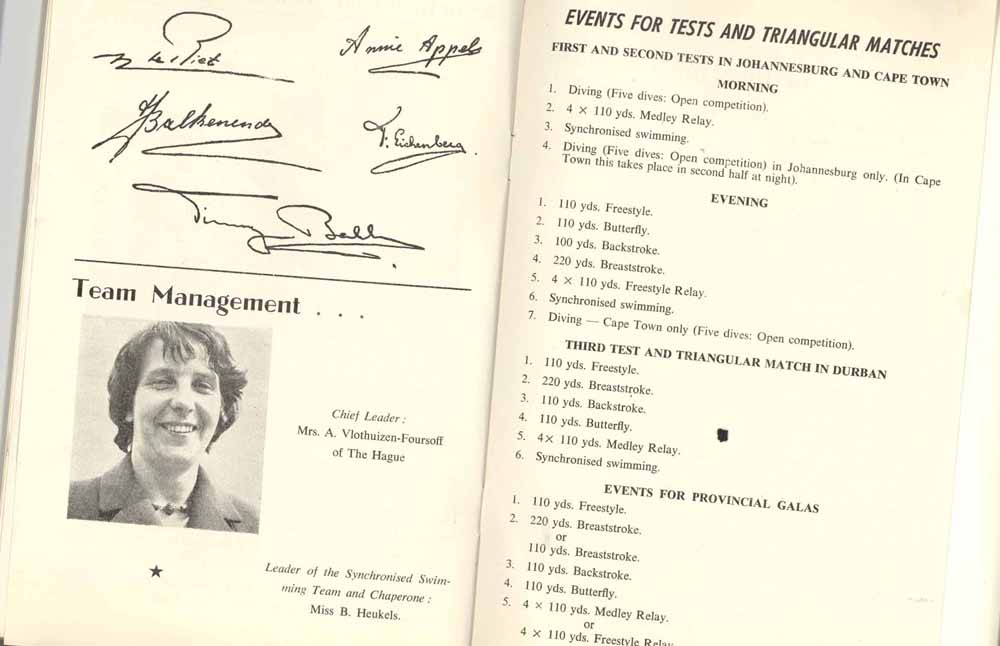 Annie Appels
Balkenende
F. Eichenberg.
Team Management . . .
Chief Leader :
Mrs. A. Vlothuizen-Foursoff
of The Hague
Leader of the Synchronised Swim-
ming Team and Chaperone :
Miss B. Heukels.
EVENTS FOR TESTS AND TRIANGULAR MATCHES
FIRST AND SECOND TESTS IN JOHANNESBURG AND CAPE TOWN
MORNING
1. Diving (Five dives: Open competition).
2. 4 × 110 yds. Medley Relay.
3. Synchronised swimming.
4. Diving (Five dives: Open competition) in Johannesburg only. (In Cape
Town this takes place in second half at night).
EVENING
1. 110 yds. Freestyle.
2. 110 yds. Butterfly.
3. 100 yds. Backstroke.
4. 220 yds. Breaststroke.
5. 4 × 110 yds. Freestyle Relay.
6. Synchronised swimming.
7. Diving — Cape Town only (Five dives: Open competition).
THIRD TEST AND TRIANGULAR MATCH IN DURBAN
1. 110 yds. Freestyle.
2. 220 yds. Breaststroke.
3. 110 yds. Backstroke.
4. 110 yds. Butterfly.
5. 4× 110 yds. Medley Relay.
6. Synchronised swimming.
EVENTS FOR PROVINCIAL GALAS
1. 110 yds. Freestyle.
2. 220 yds. Breaststroke.
or
110 yds. Breaststroke.
3. 110 yds. Backstroke.
4. 110 yds. Butterfly.
5. 4 × 110 yds. Medley Relay.
or
4 × 110 yds. Freestyle Relay